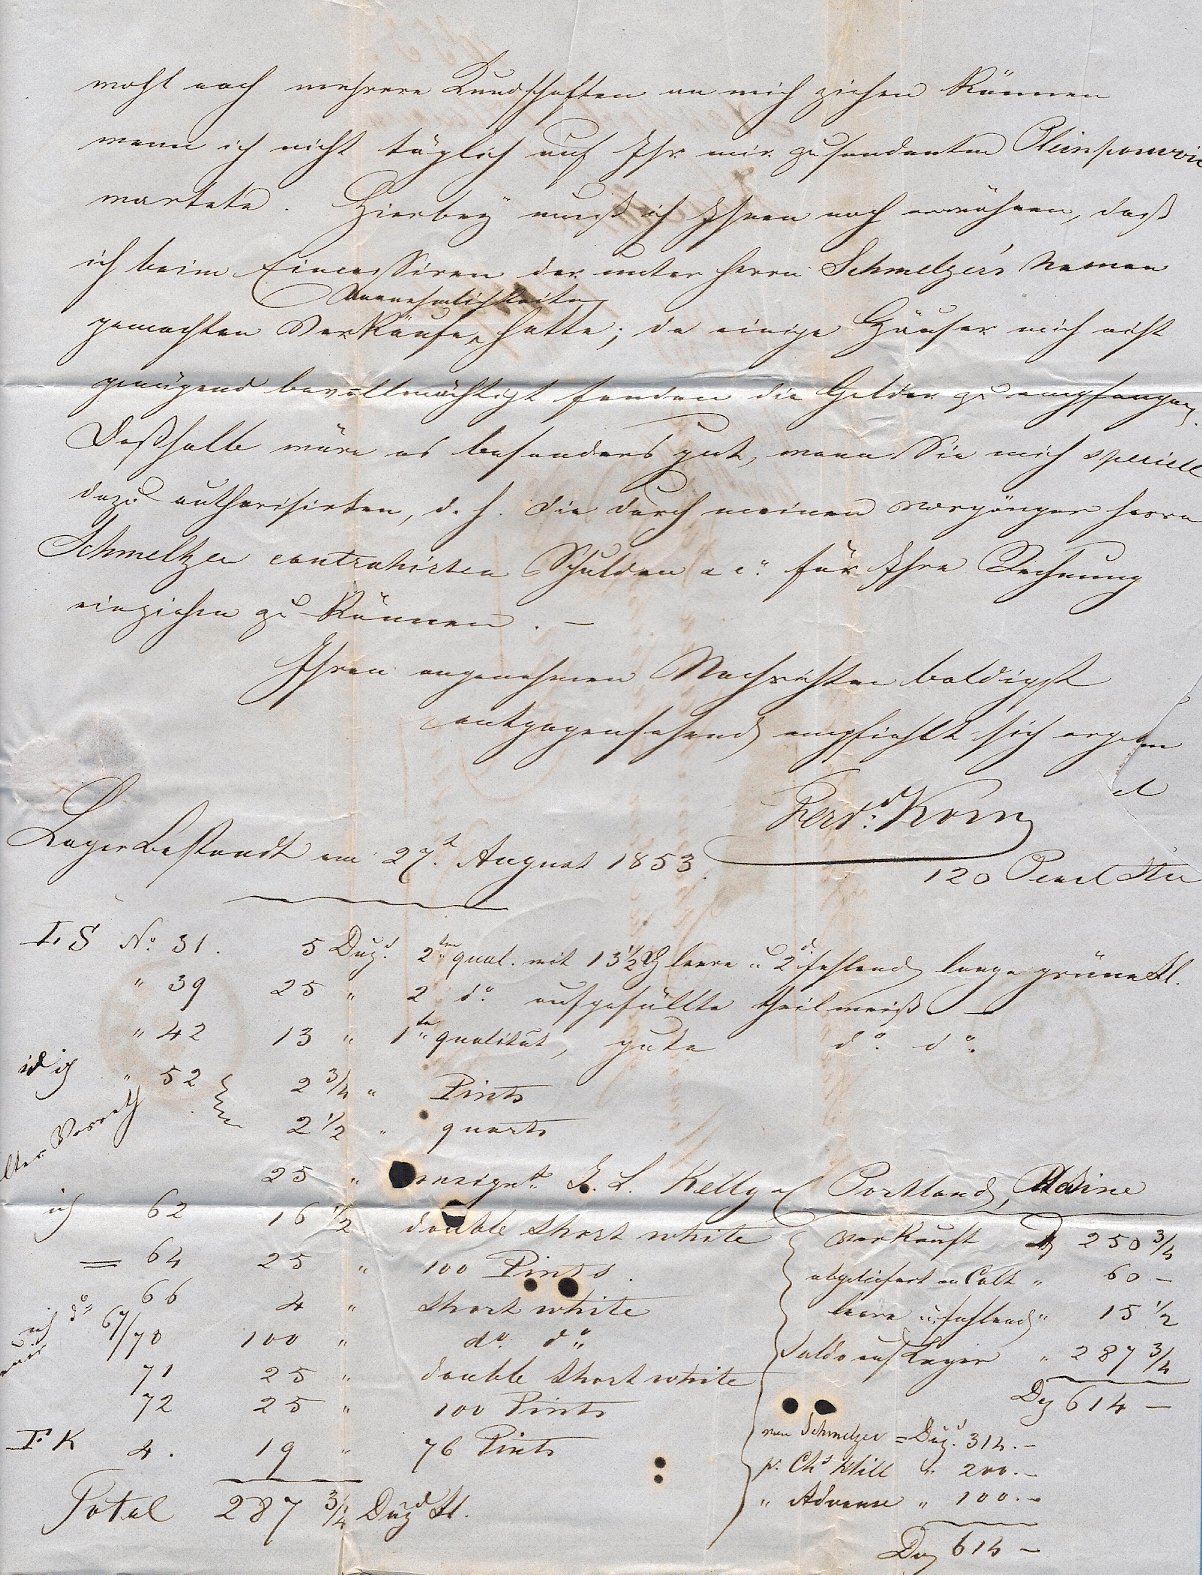 wohl noch mehrere Kundschaften an mich ziehen können
wenn ich nicht täglich auf Ihr mir zusendenden
wartete. Hierbey muß ich Ihnen noch erwähnen, daß
ich beim Eincassiren der unter Herrn Schmelzer's Namen
Unannehmlichkeiten
gemachten Verkäufe, hatte; da einige Häuser mich nicht
genügend bevollmächtigt fanden die Gelder zu empfangen.
Deßhalb wäre es besonders gut, wenn Sie mich speciell
dazu authorisirten, d. h. die durch meinen Vorgänger Herrn
Schmeltzer contrahirten Schulden für Ihre Rechnung
einziehen zu können. —
Ihren angenehmen Nachrichten baldigst
entgegensehend empfiehlt sich
Ferd. Korn
120 Pearl
Lager Bestandt am 27. August 1853.
No 31. 5 Duz. 2 qual. mit 13 1/2 leere u 2 fehlend lange grüne Fl.
" 39 25 " 2 do aufgefüllte theil weiß —
" 42 13 " 1 qualität, gute do. do.
" 52 2 3/4 " Pints
alter Vorrath
2 1/2 " quarts
25 " Kelly Portland, Maine
62 16 1/2 double short white
64 25 " 100 Pints.
66 4 " short white
67/70 100 " do do
71 25 " double short white
72 25 " 100 Pints
F. K 4. 19 " 76 Pints
Total 287 3/4 Duzd Fl.
verkauft Dz 250 3/4
abgeliefert an Colt " 60 —
leere u. fehlend " 15 1/2
Saldo auf Lager " 287 3/4
Dz 614 —
von Schmelzer = Duz. 314. —
p. Chs Hill " 200. —
" Advance " 100. —
Dz 614 —